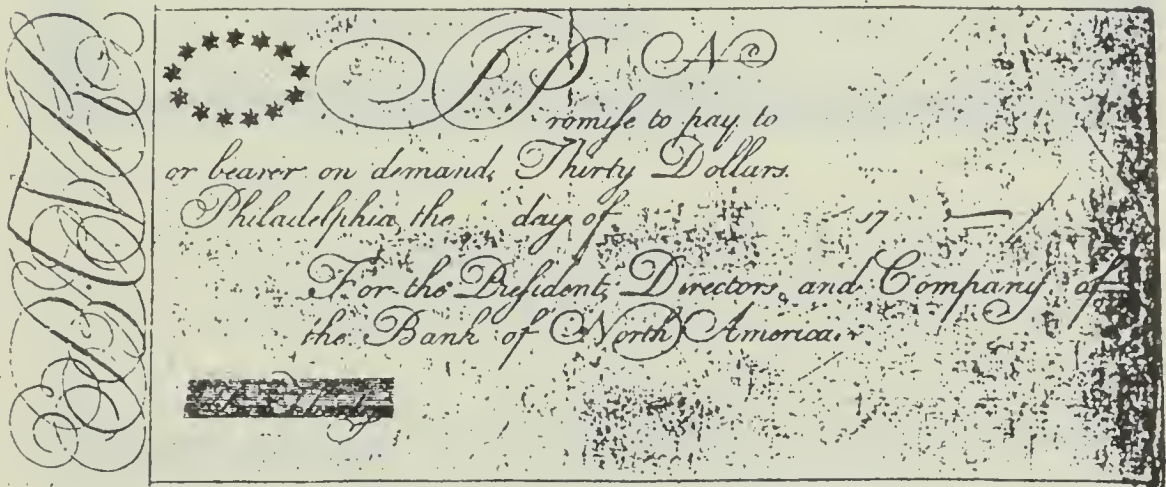 No
I Promiſe to pay to
or bearer on demand, Thirty Dollars.
Philadelphia, the day of 17
For the Preſident, Directors, and Company of
the Bank of North America.